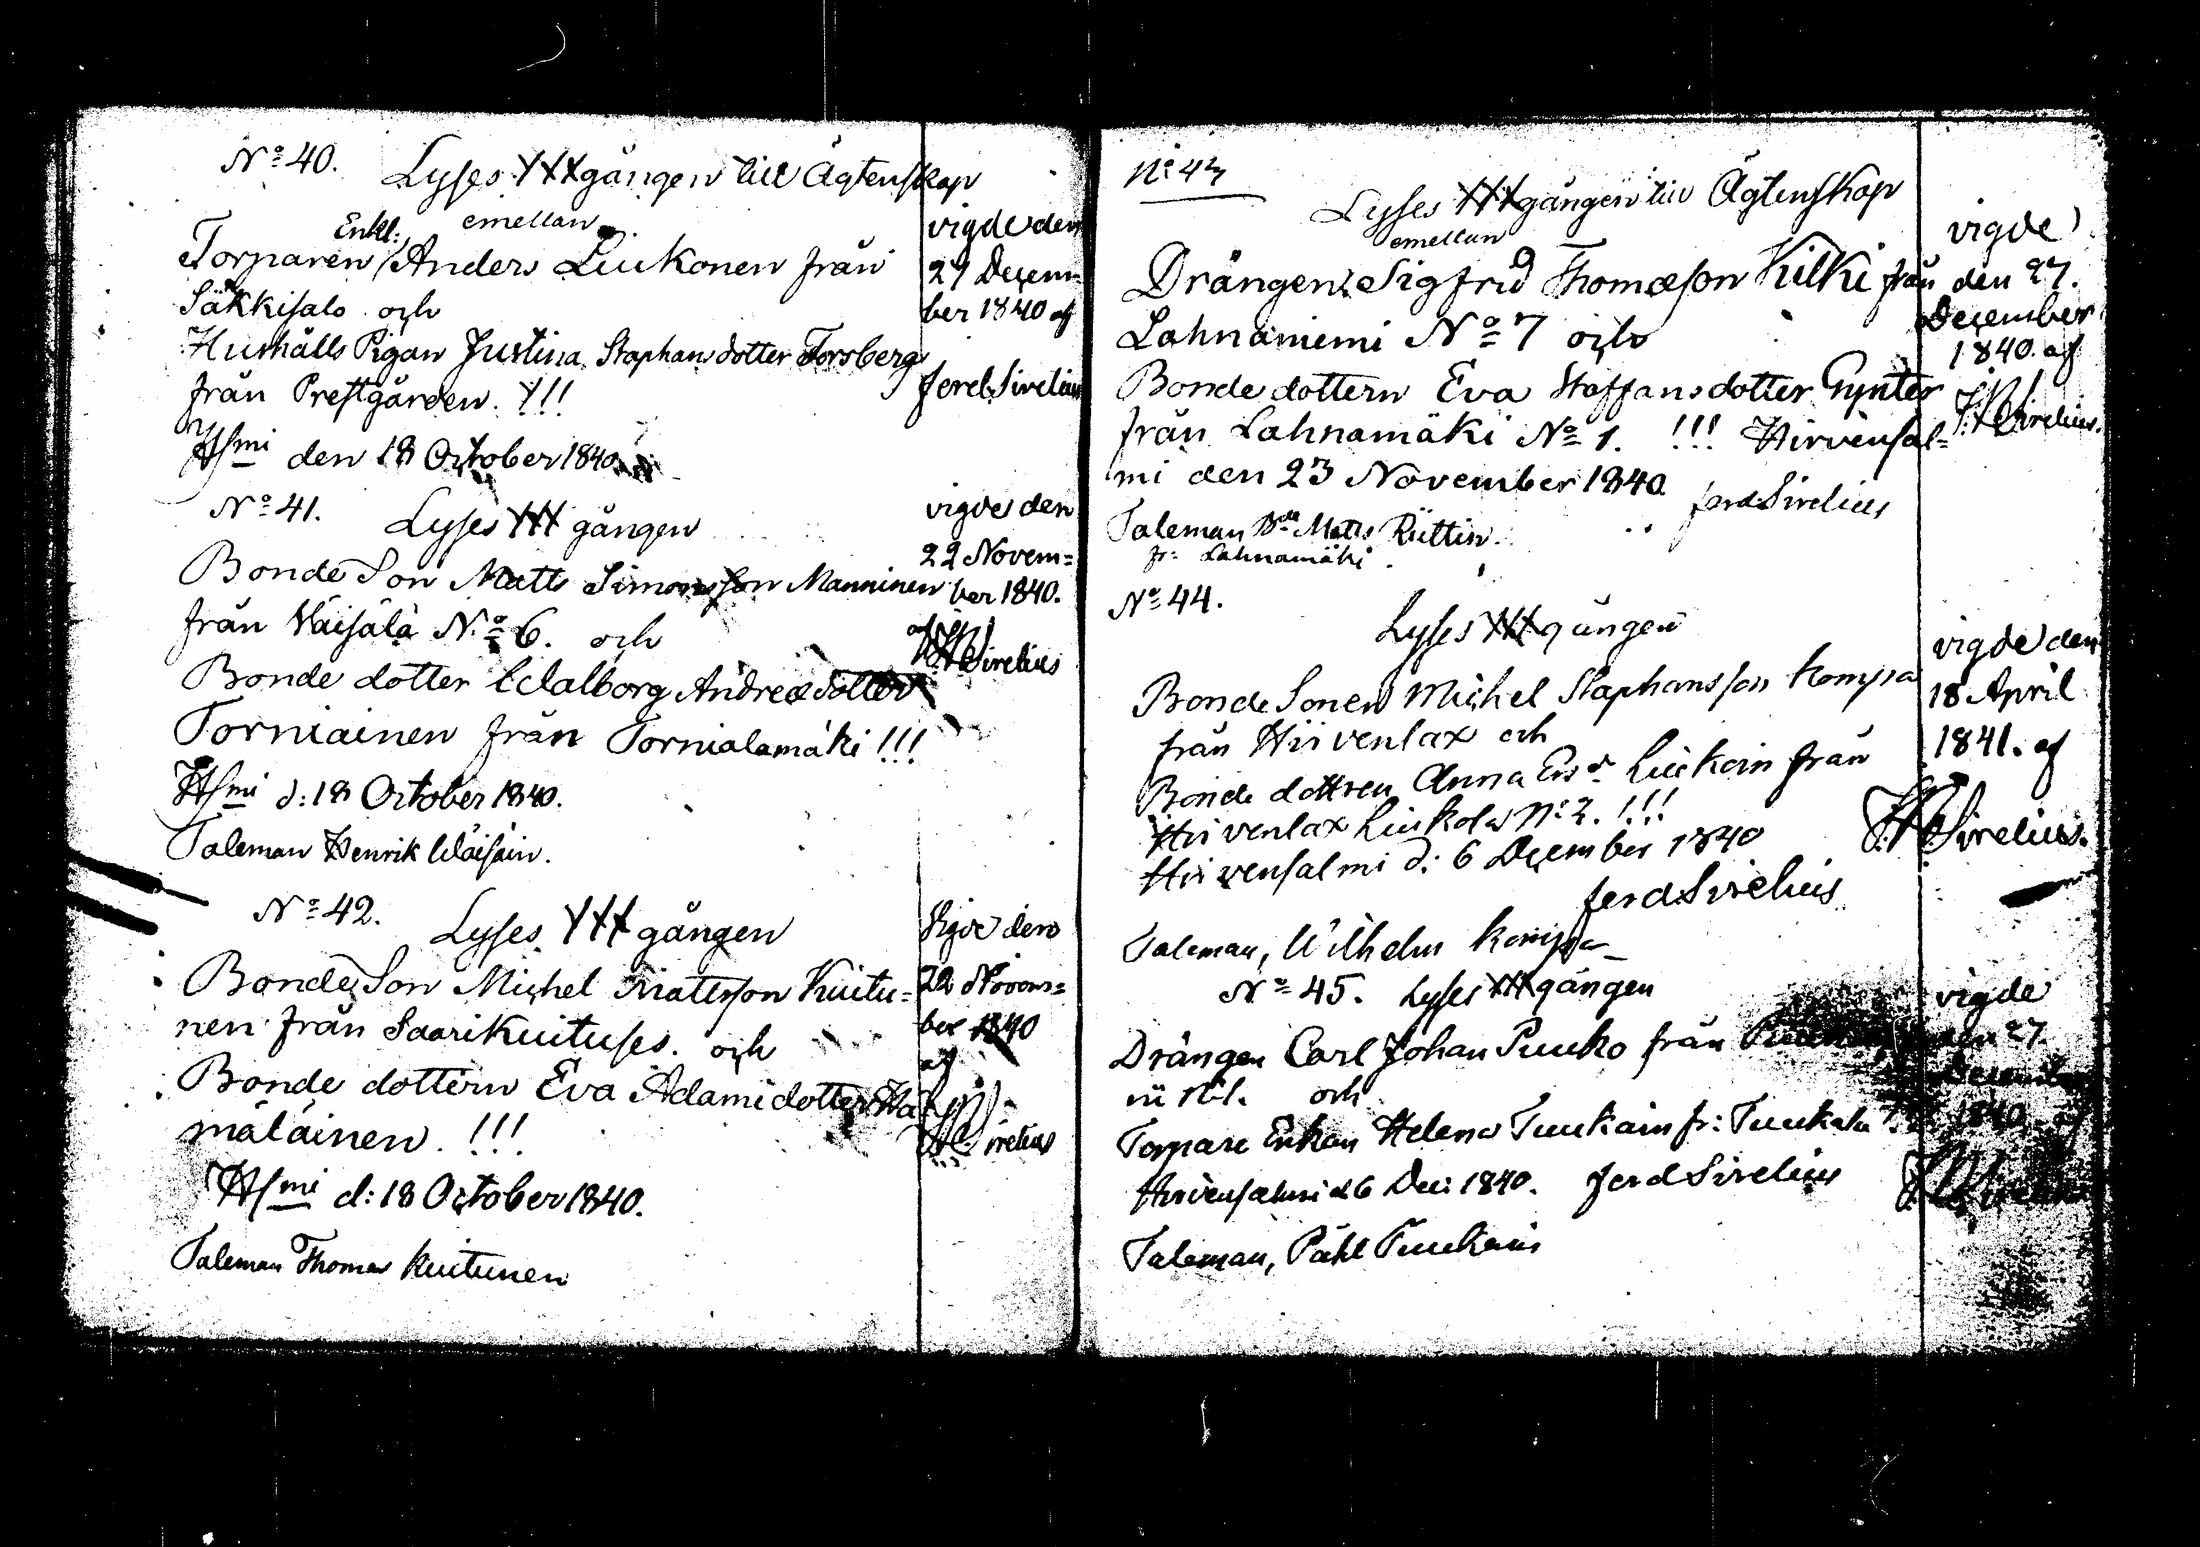 No 40. Lyses III gången till Ägtenskap
emellan
Enkl:
Torparen Anders Liukonen från
Säkkisalo och
Hushålls Pigan Justina Staphansdotter Forsberg
från Prestgården. !!!
Hsmi den 18 October 1840
vigde den
27 Decem-
ber 1840 af
Ferd Sirelius
No 41. Lyses III gången
Bonde Son Matts Simonsson Manninen
från Väisälä No 6. och
Bonde dotter Walborg Andreædotter
Torniainen från Tornialamäki !!!
Hsmi d: 18 October 1840.
Taleman Henrik Wäisäin.
vigde den
22 Novem=
ber 1840.
af
Sirelius
No 42. Lyses III gången
Bonde Son Michel Mattsson Kuitu=
nen från Saarikuituses. och
Bonde dottern Eva Adamidotter Hä
mäläinen. !!!
Hsmi d: 18 October 1840.
Taleman Thomas Kuitunen
Vigde den
22 Novem=
ber 1840
af
Sirelius
No 43
Lyses III gången till Ägtenskap
emellan
Drängen Sigfrid Thomæson Kilki från
Lahnaniemi No 7 och
Bonde dottern Eva Staffansdotter Gynter
från Lahnamäki No 1. !!! Hirvensal=
mi den 23 November 1840.
Ferd Sirelius
Taleman Bde Matts Rüttin.
fr: Lahnamäki
vigde
den 27.
December
1840. af
Sirelius.
No 44.
Lyses III gången
Bonde Sonen Michel Staphansson Kompa
från Hirvenlax och
Bonde dottren Anna Ersd Liukoin från
Hirvenlax Liukola No 2. !!!
Hirvensalmi d: 6 December 1840
Ferd Sirelius
Taleman, Wilhelm Kompa
vigde den
18 April
1841. af
Sirelius.
No 45. Lyses III gången
Drängen Carl Johan Puuko från
och
Torpare Enkan Helena Tuukain fr: Tuukala
Hirvensalmi d 6 Dec: 1840. Ferd Sirelius
Taleman, Påhl Tuukain
vigde
den 27.
December
1840 af
Sirelius